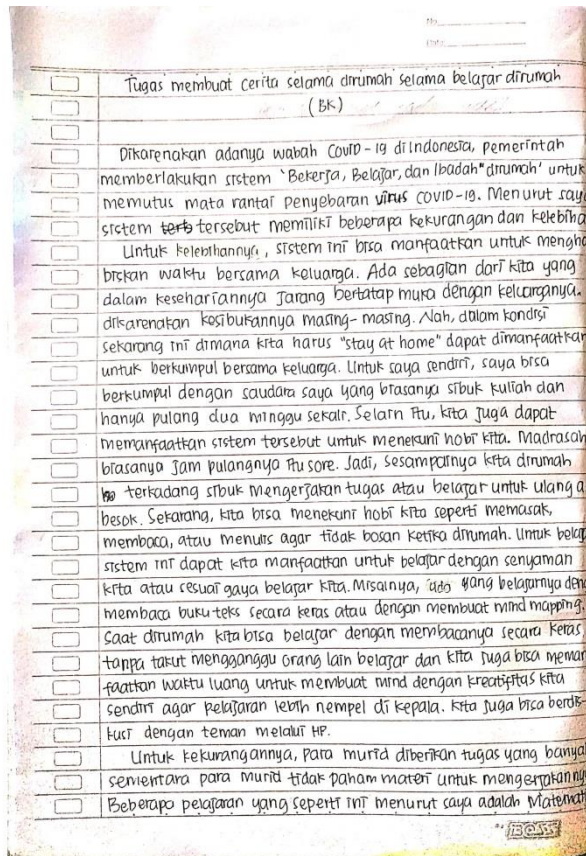 No
Date
Tugas membuat cerita selama dirumah selama belajar dirumah
(BK)
Dikarenakan adanya wabah Covid-19 di Indonesia, pemerintah
memberlakukan sistem 'Bekerja, Belajar, dan Ibadah" dirumah' untuk
memutus mata rantai penyebaran virus COVID-19. Menurut say
sistem terb tersebut memiliki beberapa kekurangan dan kelebiha
Untuk kelebihannya, sistem ini bisa manfaatkan untuk mengha
biskan waktu bersama keluarga. Ada sebagian dari kita yang
dalam kesehariannya jarang bertatap muka dengan keluarganya.
dikarenakan kesibukannya masing-masing. Nah, dalam kondisi
sekarang ini dimana kita harus "stay at home" dapat dimanfaatkan
untuk berkumpul bersama keluarga. Untuk saya sendiri, saya bisa
berkumpul dengan saudara saya yang biasanya sibuk kuliah dan
hanya pulang dua minggu sekali. Selain itu, kita juga dapat
memanfaatkan sistem tersebut untuk menekuni hobi kita. Madrasah
biasanya jam pulangnya itu sore. Jadi, sesampainya kita dirumah
terkadang sibuk mengerjakan tugas atau belajar untuk ulang a
besok. Sekarang, kita bisa menekuni hobi kita seperti memasak,
membaca, atau menulis agar tidak bosan ketika dirumah. Untuk belaj
sistem ini dapat kita manfaatkan untuk belajar dengan senyaman
kita atau sesuai gaya belajar kita. Misalnya, ada yang belajarnya den
membaca buku teks secara keras atau dengan membuat mind mapping.
Saat dirumah kita bisa belajar dengan membacanya secara keras
tanpa takut mengganggu orang lain belajar dan kita juga bisa meman
faatkan waktu luang untuk membuat mind dengan kreatifitas kita
sendiri agar pelajaran lebih nempel di kepala. Kita juga bisa berdis-
kusi dengan teman melalui HP.
Untuk kekurangannya, para murid diberikan tugas yang banya
sementara para murid tidak paham materi untuk mengerjakannya
Beberapa pelajaran yang seperti ini menurut saya adalah Matemat
BOSS